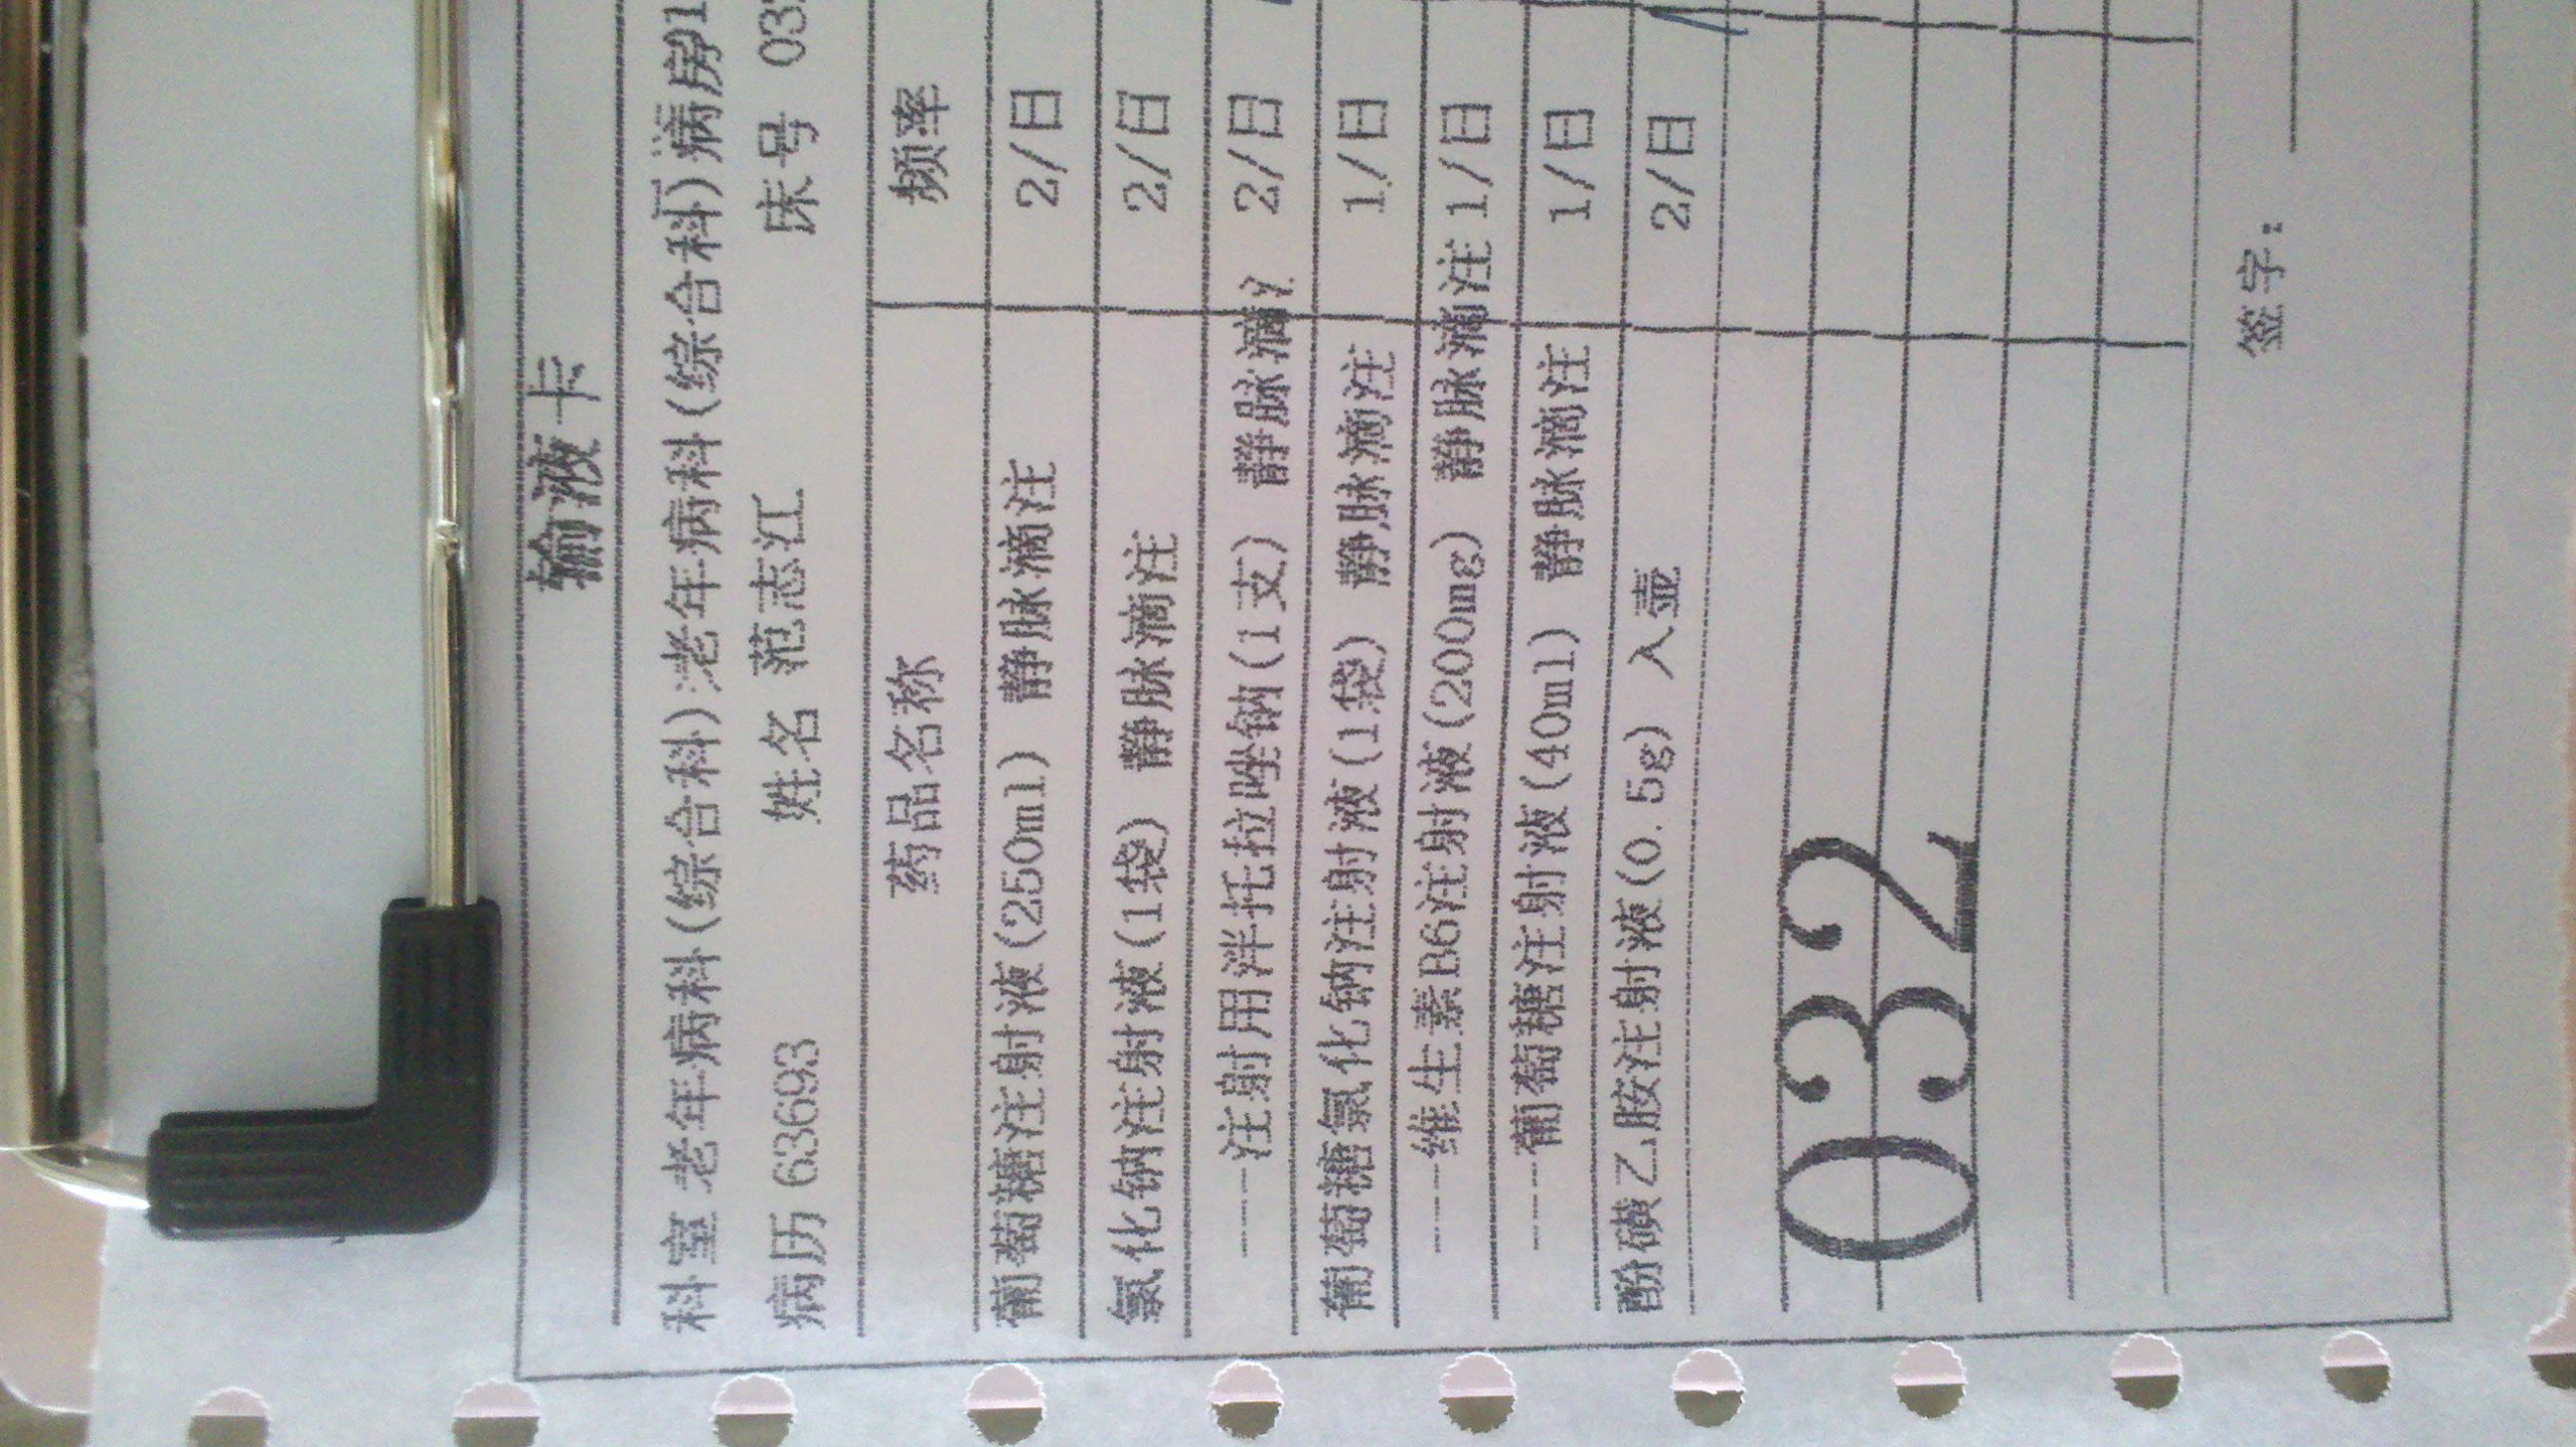 输液卡
科室 老年病科(综合科);老年病科(综合科)病房1
病历 63693 姓名 范志江 床号 03
药品名称 频率
葡萄糖注射液(250ml) 静脉滴注 2/日
氯化钠注射液(1袋) 静脉滴注 2/日
---注射用泮托拉唑钠(1支) 静脉滴 2/日
葡萄糖氯化钠注射液(1袋) 静脉滴注 1/日
---维生素B6注射液(200mg) 静脉滴注 1/日
---葡萄糖注射液(40ml) 静脉滴注 1/日
酚磺乙胺注射液(0.5g) 入壶 2/日
032
签字: